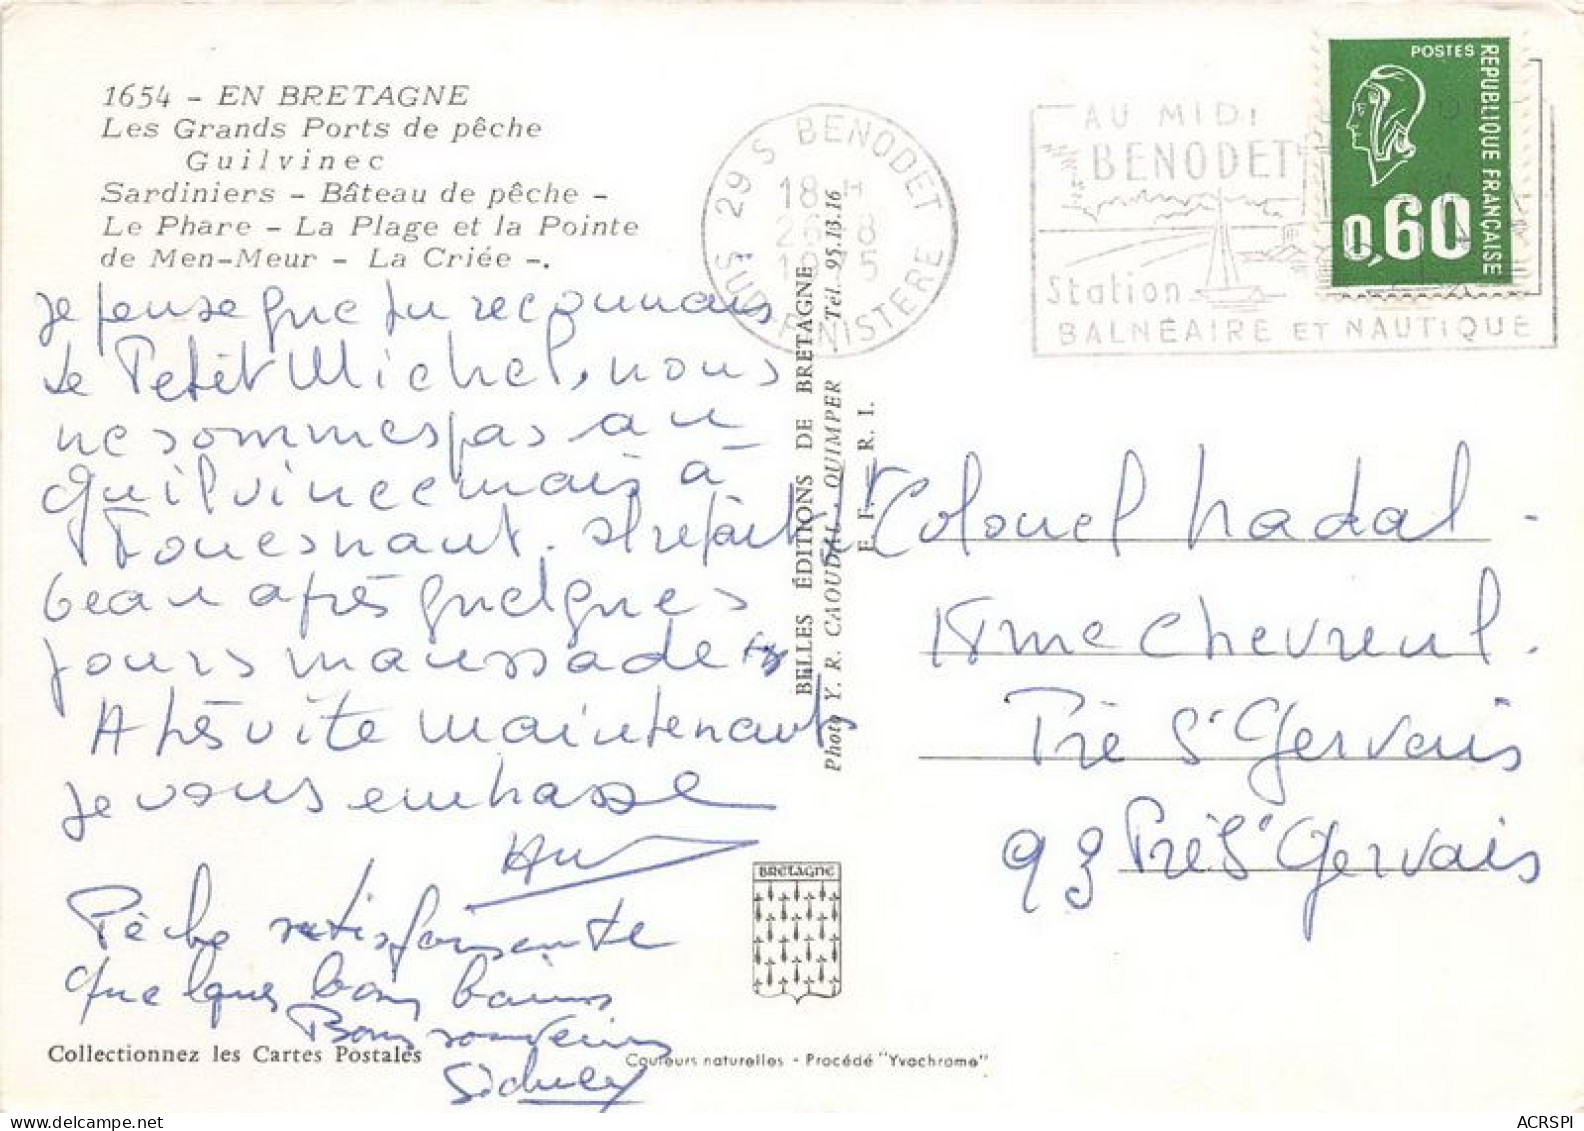 1654 - EN BRETAGNE
Les Grands Ports de pêche
Guilvinec
Sardiniers - Bâteau de pêche -
Le Phare - La Plage et la Pointe
de Men-Meur - La Criée -.
Je pense que tu reconnais
le Petit Michel, nous
ne sommes pas au
Guilvinec mais à
Fouesnant. Il refait
beau après quelques
jours maussades
A très vite maintenant
je vous embrasse
Pêche satisfaisante
quelques bons bains
Bons souvenirs
Collectionnez les Cartes Postales
BELLES ÉDITIONS DE BRETAGNE
Photo Y. R. CAOUDAL - QUIMPER Tél. 95.13.16
E. F. R. I.
BRETAGNE
Couleurs naturelles - Procédé "Yvachrome"
29 S BENODET
18 H
26 8
SUD FINISTERE
AU MIDI
BENODET
Station
BALNÉAIRE ET NAUTIQUE
POSTES
REPUBLIQUE FRANÇAISE
0,60
Colonel Nadal -
Chevreul.
Pré St Gervais
93 Pré St Gervais
ACRSPI